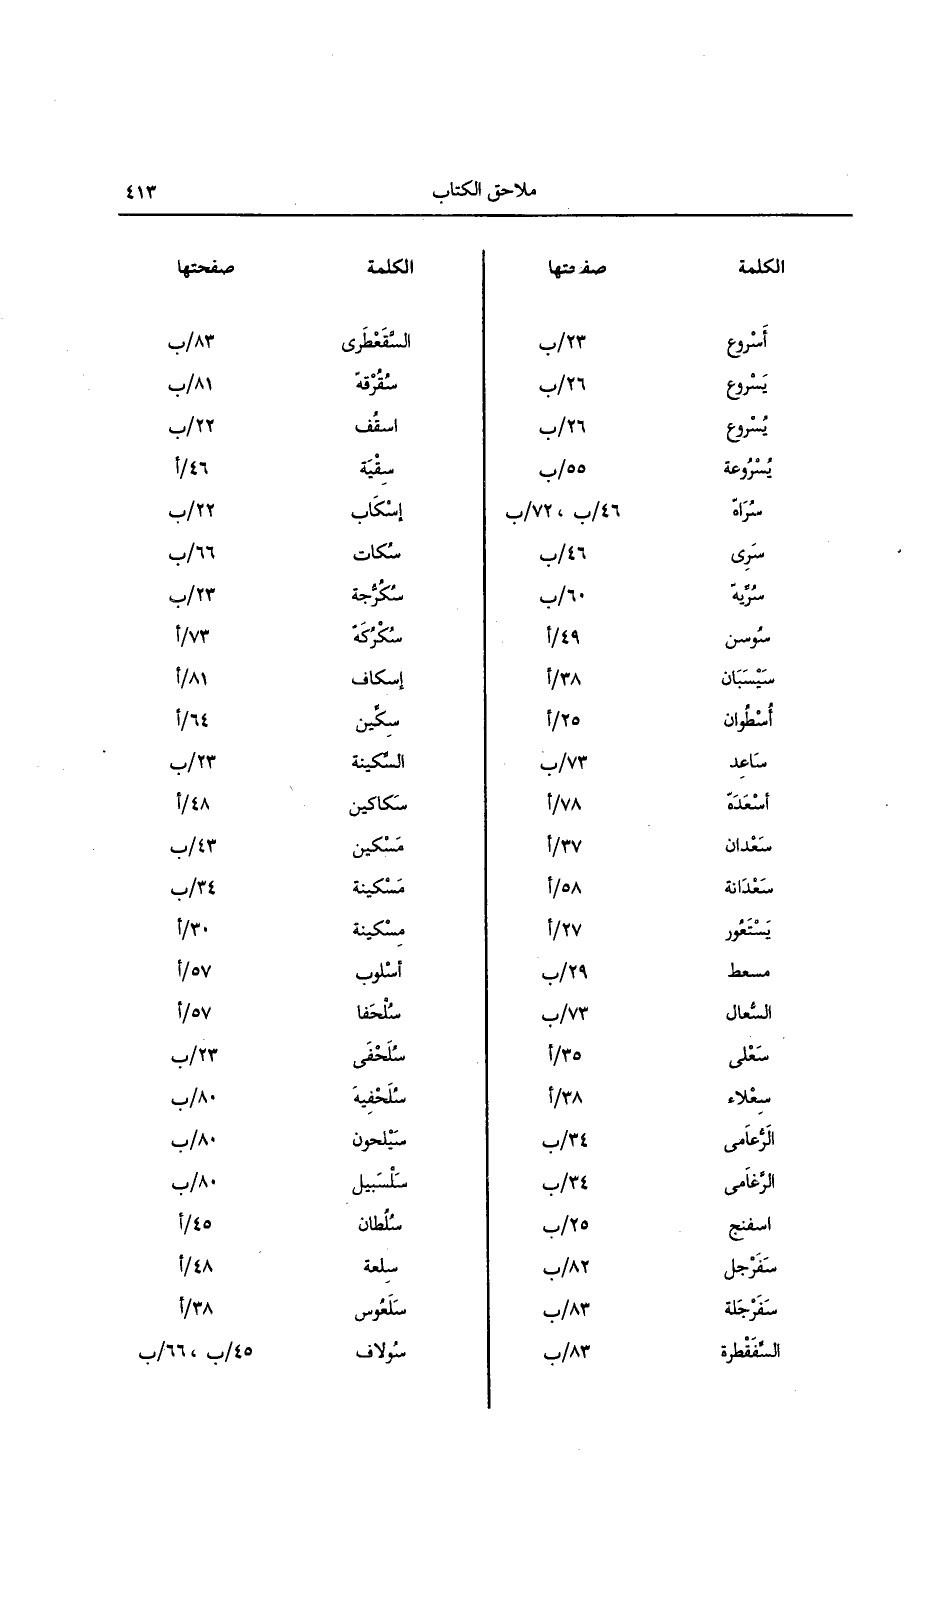 ملاحق الكتاب ٤١٣
الكلمة صفحتها
أَسْروع ٢٣/ب
يَسْروع ٢٦/ب
يُسْروع ٢٦/ب
يُسْرُوعة ٥٥/ب
سُرَاة ٤٦/ب ، ٧٢/ب
سَرِى ٤٦/ب
سُرِّية ٦٠/ب
سُوسن ٤٩/أ
سَيْسَبَان ٣٨/أ
أُسْطُوان ٢٥/أ
سَاعِد ٧٣/ب
أسْعَدَة ٧٨/أ
سَعْدان ٣٧/أ
سَعْدَانة ٥٨/أ
يَسْتَعُور ٢٧/أ
مسعط ٢٩/ب
السُّعال ٧٣/ب
سَعْلى ٣٥/أ
سِعْلاء ٣٨/أ
الرُّعامى ٣٤/ب
الرُّغَامى ٣٤/ب
اسفنج ٢٥/ب
سَفَرْجل ٨٢/ب
سَفَرْجَلة ٨٣/ب
السِّفَقْطرة ٨٣/ب
الكلمة صفحتها
السَّقَعْطَرى ٨٣/ب
سُقُرْقة ٨١/ب
اسقُف ٢٢/ب
سِقْيَة ٤٦/أ
إسْكَاب ٢٢/ب
سُكات ٦٦/ب
سُكُرُّجة ٢٣/ب
سُكْرُكَة ٧٣/أ
إسكاف ٨١/أ
سِكِّين ٦٤/أ
السَّكينة ٢٣/ب
سَكاكين ٤٨/أ
مَسْكين ٤٣/ب
مَسْكينة ٣٤/ب
مِسْكينة ٣٠/أ
أسْلوب ٥٧/أ
سُلْحَفا ٥٧/أ
سُلَحْفَى ٢٣/ب
سُلَحْفِيةَ ٨٠/ب
سَيْلحون ٨٠/ب
سَلْسَبيل ٨٠/ب
سُلْطان ٤٥/أ
سِلعة ٤٨/أ
سَلَعُوس ٣٨/أ
سُولاف ٤٥/ب ، ٦٦/ب